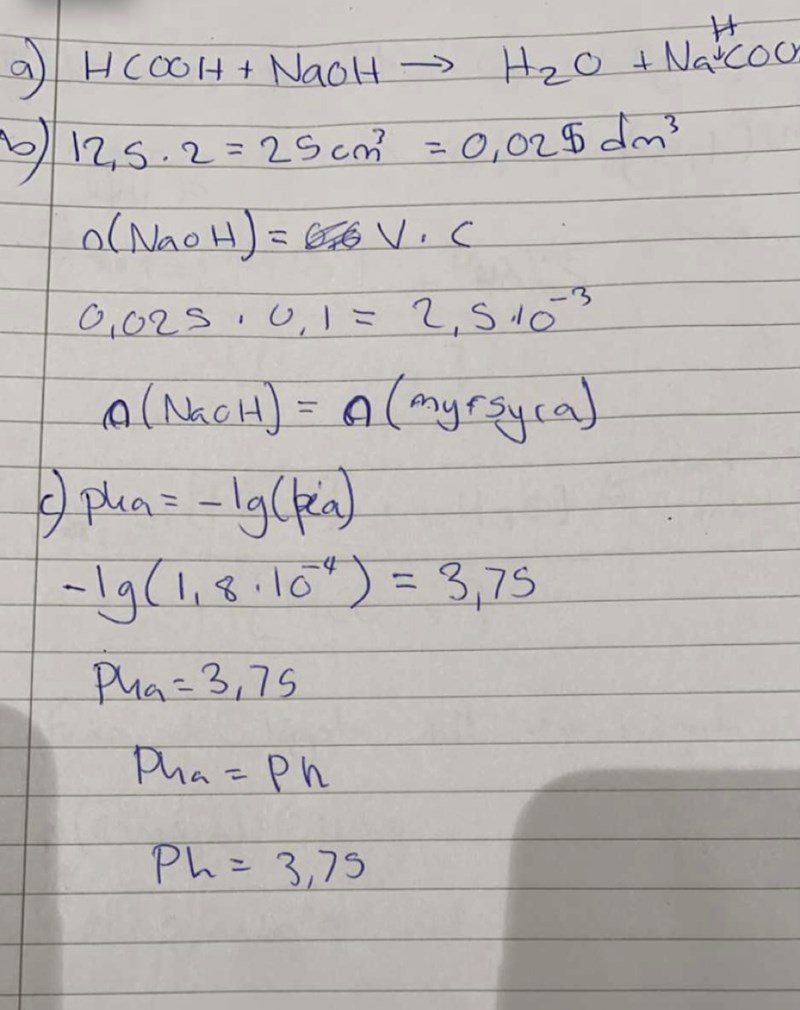 a) HCOOH + NaOH → H₂O + NaHCOO
b) 12,5 · 2 = 25 cm³ = 0,025 dm³
n(NaOH) = V · C
0,025 · 0,1 = 2,5·10⁻³
n(NaOH) = n(myrsyra)
c) pka = -lg(ka)
-lg(1,8·10⁻⁴) = 3,75
Pka = 3,75
Pka = Ph
Ph = 3,75